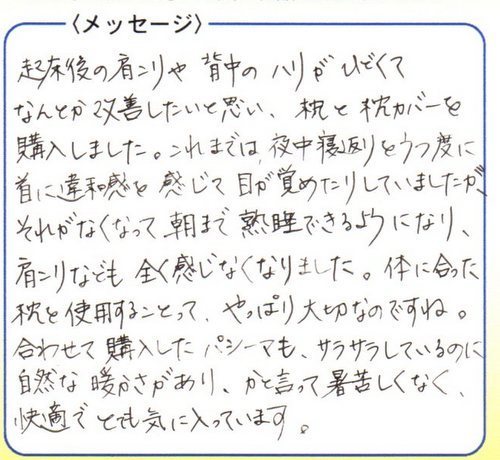 〈メッセージ〉
起床後の肩こりや 背中の ハリが ひどくて
なんとか改善したいと思い、枕と 枕カバーを
購入しました。これまでは、夜中寝返りをうつ度に
首に違和感を 感じて 目が覚めたりしていましたが、
それがなくなって 朝まで 熟睡できるようになり、
肩こりなども 全く感じなくなりました。体に合った
枕を使用することって、やっぱり大切なのですね。
合わせて購入した パシーマも、サラサラしているのに
自然な 暖かさがあり、かと言って 暑苦しくなく、
快適で とても気に入っています。